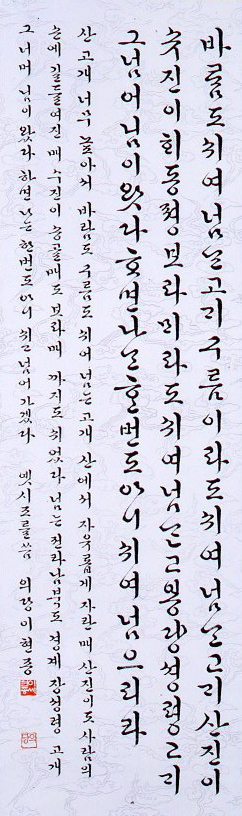 바ᄅᆞᆷ도쉬여넘ᄂᆞᆫ고ᄀᆡ구름이라도쉬여넘ᄂᆞᆫ고ᄀᆡ산진이
슈진이ᄒᆡ동쳥보라ᄆᆡ라도쉬여넘ᄂᆞᆫ고봉쟝셩령고ᄀᆡ
그넘어님이왓다ᄒᆞ면나ᄂᆞᆫᄒᆞᆫ번도아니쉬여넘으리라
산 고개 너무 높아서 바람도 구름도 쉬어 넘는 고개 산에서 자유롭게 자란 매 산진이도 사람의
손에 길들여진 매 수진이 송골매도 보라매 까지도 쉬었다 넘는 전라남북도 경계 장성령 고개
그 너머 님이 왔다 하면 나는 한번도 아니 쉬고 넘어 가겠다 옛시조를 씀 의당 이현종